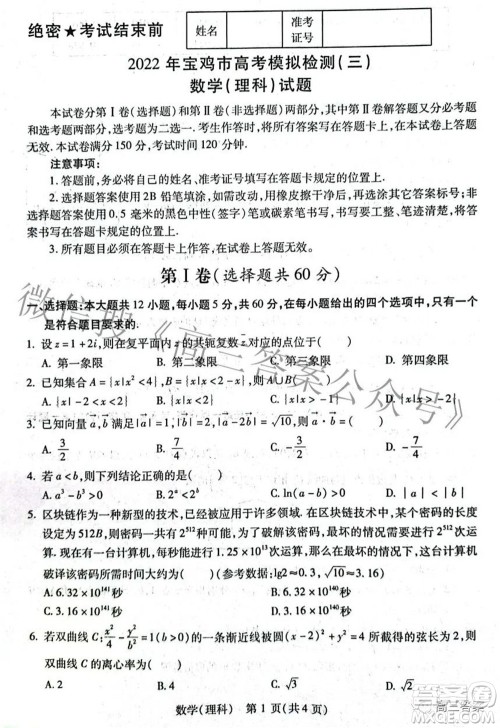 绝密★考试结束前
姓名
准考证号
2022年宝鸡市高考模拟检测(三)
数学(理科)试题
本试卷分第Ⅰ卷(选择题)和第Ⅱ卷(非选择题)两部分,其中第Ⅱ卷解答题又分必考题
和选考题两部分,选考题为二选一.考生作答时,将所有答案写在答题卡上,在本试卷上答题
无效.本试卷满分150分,考试时间120分钟.
注意事项:
1.答题前,务必将自己的姓名、准考证号填写在答题卡规定的位置上.
2.选择题答案使用2B铅笔填涂,如需改动,用橡皮擦干净后,再填涂其它答案标号;非
选择题答案使用0.5毫米的黑色中性(签字)笔或碳素笔书写,字体工整、笔迹清楚.
3.所有题目必须在答题卡上作答,在试卷上答题无效.
第Ⅰ卷(选择题共60分)
一.选择题:本大题共12小题,每小题5分,共60分,在每小题给出的四个选项中,只有一个
是符合题目要求的.
1. 设z=1+2i,则在复平面内z的共轭复数对应的点位于( )
A. 第一象限 B. 第二象限 C. 第三象限 D. 第四象限
2. 已知集合A={x|x²<4},B={x|2ˣ<2},则A∪B( )
A. {x|-2<x<2} B. {x|x<1} C. {x|x<2} D. {x|x>-2}
3. 已知向量a,b满足|a|=1|b|=2,|a-b|=√10,则a·b=( )
A. -3/2 B. -7/4 C. 3/2 D. 7/4
4. 若a<b,则下列结论正确的是( )
A. a³-b³>0 B. 2ᵃ<2ᵇ C. ln(a-b)>0 D. |a|<|b|
5. 区块链作为一种新型的技术,已经被应用于许多领域.在区块链技术中,某个密码的长度
设定为512B,则密码一共有2⁵¹²种可能,为了破解该密码,最坏的情况需要2⁵¹²次运算.
现在有一台计算机,每秒能进行1.25×10¹³次运算,那么在最坏的情况下,这台计算机
破译该密码所需时间大约为( )(参考数据:lg2≈0.3,√10≈3.16)
A. 6.32×10¹⁴¹秒 B. 6.32×10¹⁴⁰秒
C. 3.16×10¹⁴¹秒 D. 3.16×10¹⁴⁰秒
6. 若双曲线C:x²/a²-y²/b²=1(a>0,b>0)的一条渐近线被圆(x-2)²+y²=4所截得的弦长为2,则双
曲线C的离心率为( )
A. 2 B. √3 C. √2 D. 2√3/3
数学(理科) 第1页(共4页)
微信搜《高三答案公众号》
高三答案